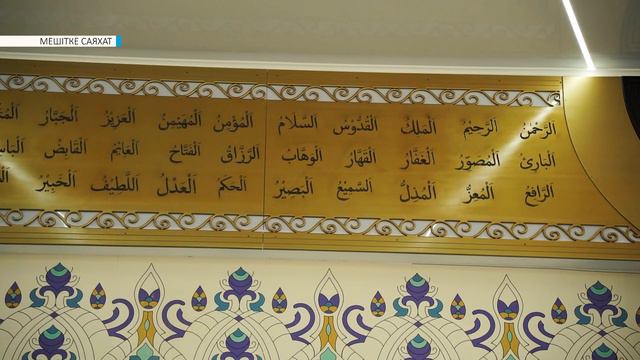 МЕШІТКЕ САЯХАТ
اَلرَّحْمٰنُ اَلرَّحِيْمُ اَلْمَلِكُ اَلْقُدُّوْسُ اَلسَّلَامُ اَلْمُؤْمِنُ اَلْمُهَيْمِنُ اَلْعَزِيْزُ اَلْجَبَّارُ
اَلْبَارِئُ اَلْمُصَوِّرُ اَلْغَفَّارُ اَلْقَهَّارُ اَلْوَهَّابُ اَلرَّزَّاقُ اَلْفَتَّاحُ اَلْقَابِضُ
اَلرَّافِعُ اَلْمُعِزُّ اَلْمُذِلُّ اَلسَّمِيْعُ اَلْبَصِيْرُ اَلْحَكَمُ اَلْعَدْلُ اَللَّطِيْفُ اَلْخَبِيْرُ